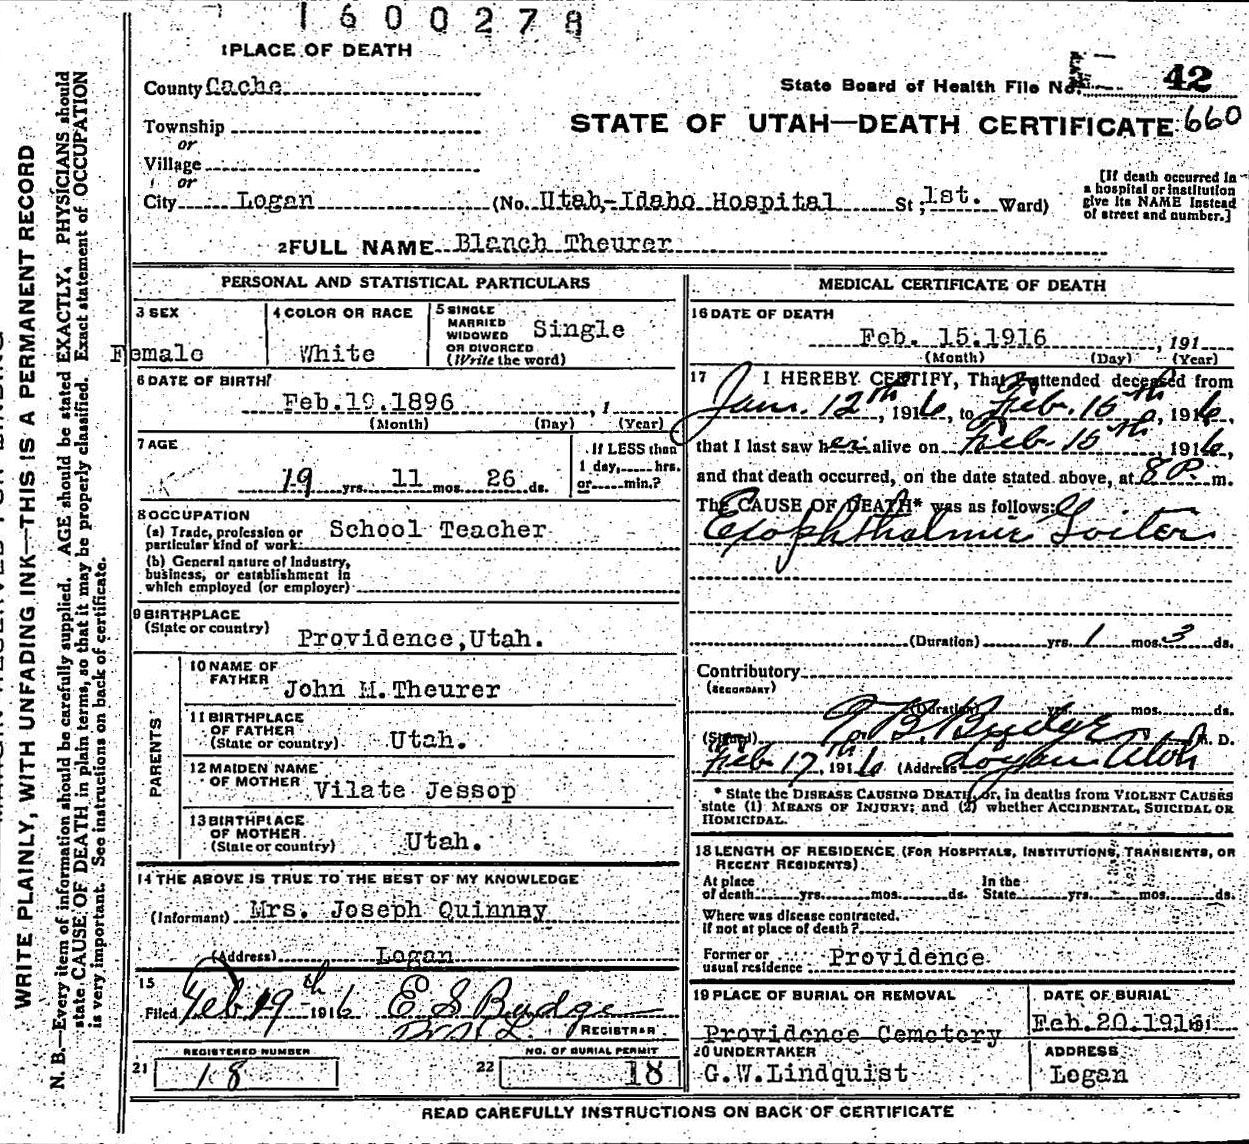 1600278
1 PLACE OF DEATH
County Cache
State Board of Health File No. 42
Township
STATE OF UTAH—DEATH CERTIFICATE 660
or
Village
or
City Logan (No. Utah-Idaho Hospital St; 1st. Ward)
[If death occurred in
a hospital or institution
give its NAME instead
of street and number.]
2 FULL NAME Blanch Theurer
PERSONAL AND STATISTICAL PARTICULARS
3 SEX
Female
4 COLOR OR RACE
White
5 SINGLE
MARRIED
WIDOWED
OR DIVORCED
(Write the word)
Single
6 DATE OF BIRTH
Feb.19.1896 , 1
(Month) (Day) (Year)
7 AGE
19 yrs. 11 mos. 26 ds.
If LESS than
1 day, hrs.
or min.?
8 OCCUPATION
(a) Trade, profession or
particular kind of work
School Teacher
(b) General nature of Industry,
business, or establishment in
which employed (or employer)
9 BIRTHPLACE
(State or country)
Providence,Utah.
PARENTS
10 NAME OF
FATHER
John M.Theurer
11 BIRTHPLACE
OF FATHER
(State or country)
Utah.
12 MAIDEN NAME
OF MOTHER
Vilate Jessop
13 BIRTHPLACE
OF MOTHER
(State or country)
Utah.
14 THE ABOVE IS TRUE TO THE BEST OF MY KNOWLEDGE
(Informant) Mrs. Joseph Quinney
(Address) Logan
15
Filed Feb 19th 1916 E S Budge
REGISTRAR
REGISTERED NUMBER
21 18
NO. OF BURIAL PERMIT
22 18
MEDICAL CERTIFICATE OF DEATH
16 DATE OF DEATH
Feb. 15.1916 , 191
(Month) (Day) (Year)
17 I HEREBY CERTIFY, That I attended deceased from
Jan. 12th, 1916, to Feb. 15th, 1916,
that I last saw her alive on Feb. 15th, 1916,
and that death occurred, on the date stated above, at 8 P. m.
The CAUSE OF DEATH* was as follows:
Exophthalmic Goiter
(Duration) yrs. 1 mos. 3 ds.
Contributory
(SECONDARY)
(Duration) yrs. mos. ds.
(Signed) Budge M. D.
Feb. 17th, 1916 (Address) Logan Utah
* State the DISEASE CAUSING DEATH, or, in deaths from VIOLENT CAUSES
state (1) MEANS OF INJURY; and (2) whether ACCIDENTAL, SUICIDAL OR
HOMICIDAL.
18 LENGTH OF RESIDENCE (FOR HOSPITALS, INSTITUTIONS, TRANSIENTS, OR
RECENT RESIDENTS)
At place
of death yrs. mos. ds.
In the
State yrs. mos. ds.
Where was disease contracted,
If not at place of death?
Former or
usual residence Providence
19 PLACE OF BURIAL OR REMOVAL
Providence Cemetery
DATE OF BURIAL
Feb.20.1916 191
20 UNDERTAKER
G.W.Lindquist
ADDRESS
Logan
READ CAREFULLY INSTRUCTIONS ON BACK OF CERTIFICATE
WRITE PLAINLY, WITH UNFADING INK—THIS IS A PERMANENT RECORD
N. B.—Every item of information should be carefully supplied. AGE should be stated EXACTLY. PHYSICIANS should
state CAUSE OF DEATH in plain terms, so that it may be properly classified. Exact statement of OCCUPATION
is very important. See instructions on back of certificate.